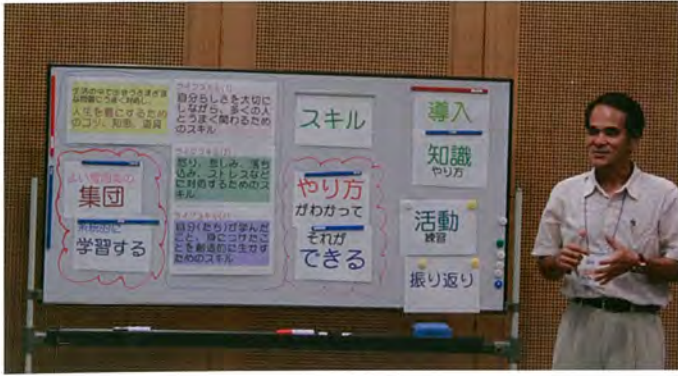 生活の中で出会うさまざま
な問題にうまく対処し、
人生を豊にするため
のコツ、知恵、道具
よい雰囲気の
集団
系統的に
学習する
ライフスキル(1)
自分らしさを大切に
しながら、多くの人
とうまく関わるため
のスキル
ライフスキル(2)
怒り、悲しみ、落ち
込み、ストレスなど
に対処するためのス
キル
ライフスキル(3)
自分(たち)が学んだ
こと、身につけたこ
とを創造的に生かす
ためのスキル
スキル
やり方
がわかって
それが
できる
導入
知識
やり方
活動
練習
振り返り